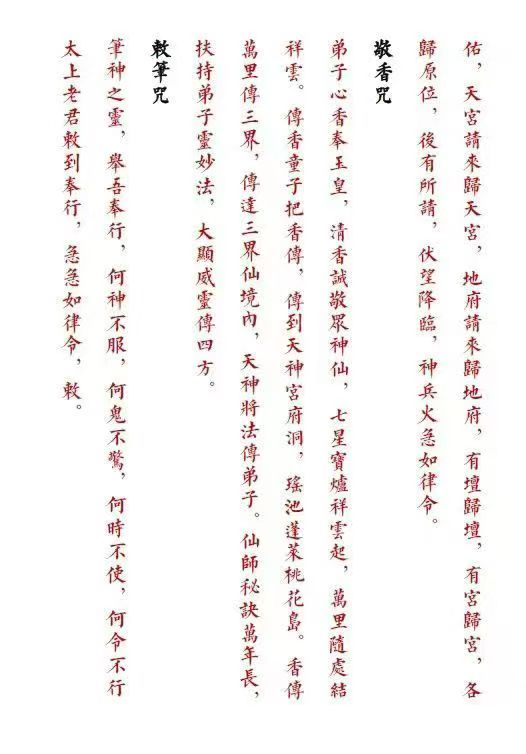 佑，天宮請來歸天宮，地府請來歸地府，有壇歸壇，有宮歸宮，各
歸原位，後有所請，伏望降臨，神兵火急如律令。
敬香咒
弟子心香奉玉皇，清香誠敬眾神仙，七星寶爐祥雲起，萬里隨處結
祥雲。傳香童子把香傳，傳到天神宮府洞，瑤池蓬萊桃花島。香傳
萬里傳三界，傳達三界仙境內，天神將法傳弟子。仙師秘訣萬年長，
扶持弟子靈妙法，大顯威靈傳四方。
敕筆咒
筆神之靈，舉吾奉行，何神不服，何鬼不驚，何時不使，何令不行
太上老君敕到奉行，急急如律令，敕。